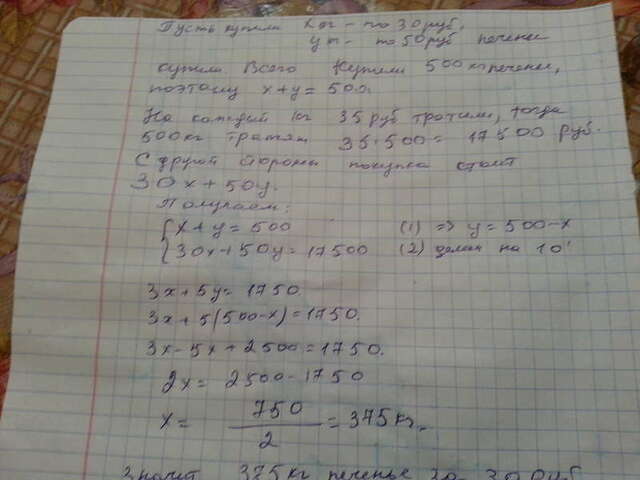 Пусть купили x кг - по 30 руб,
y кг - по 50 руб печенье
купили. Всего купили 500 кг печенье,
поэтому x+y=500.
На каждый кг 35 руб тратили, тогда
500кг тратят 35·500=17500 руб.
С другой стороны покупка стоит
30x+50y.
Получаем:
{x+y=500 (1) => y=500-x
{30x+50y=17500 (2) делим на 10!
3x+5y=1750.
3x+5(500-x)=1750.
3x-5x+2500=1750.
2x=2500-1750
x= 750/2 =375кг.
Значит 375кг печенье 30 руб